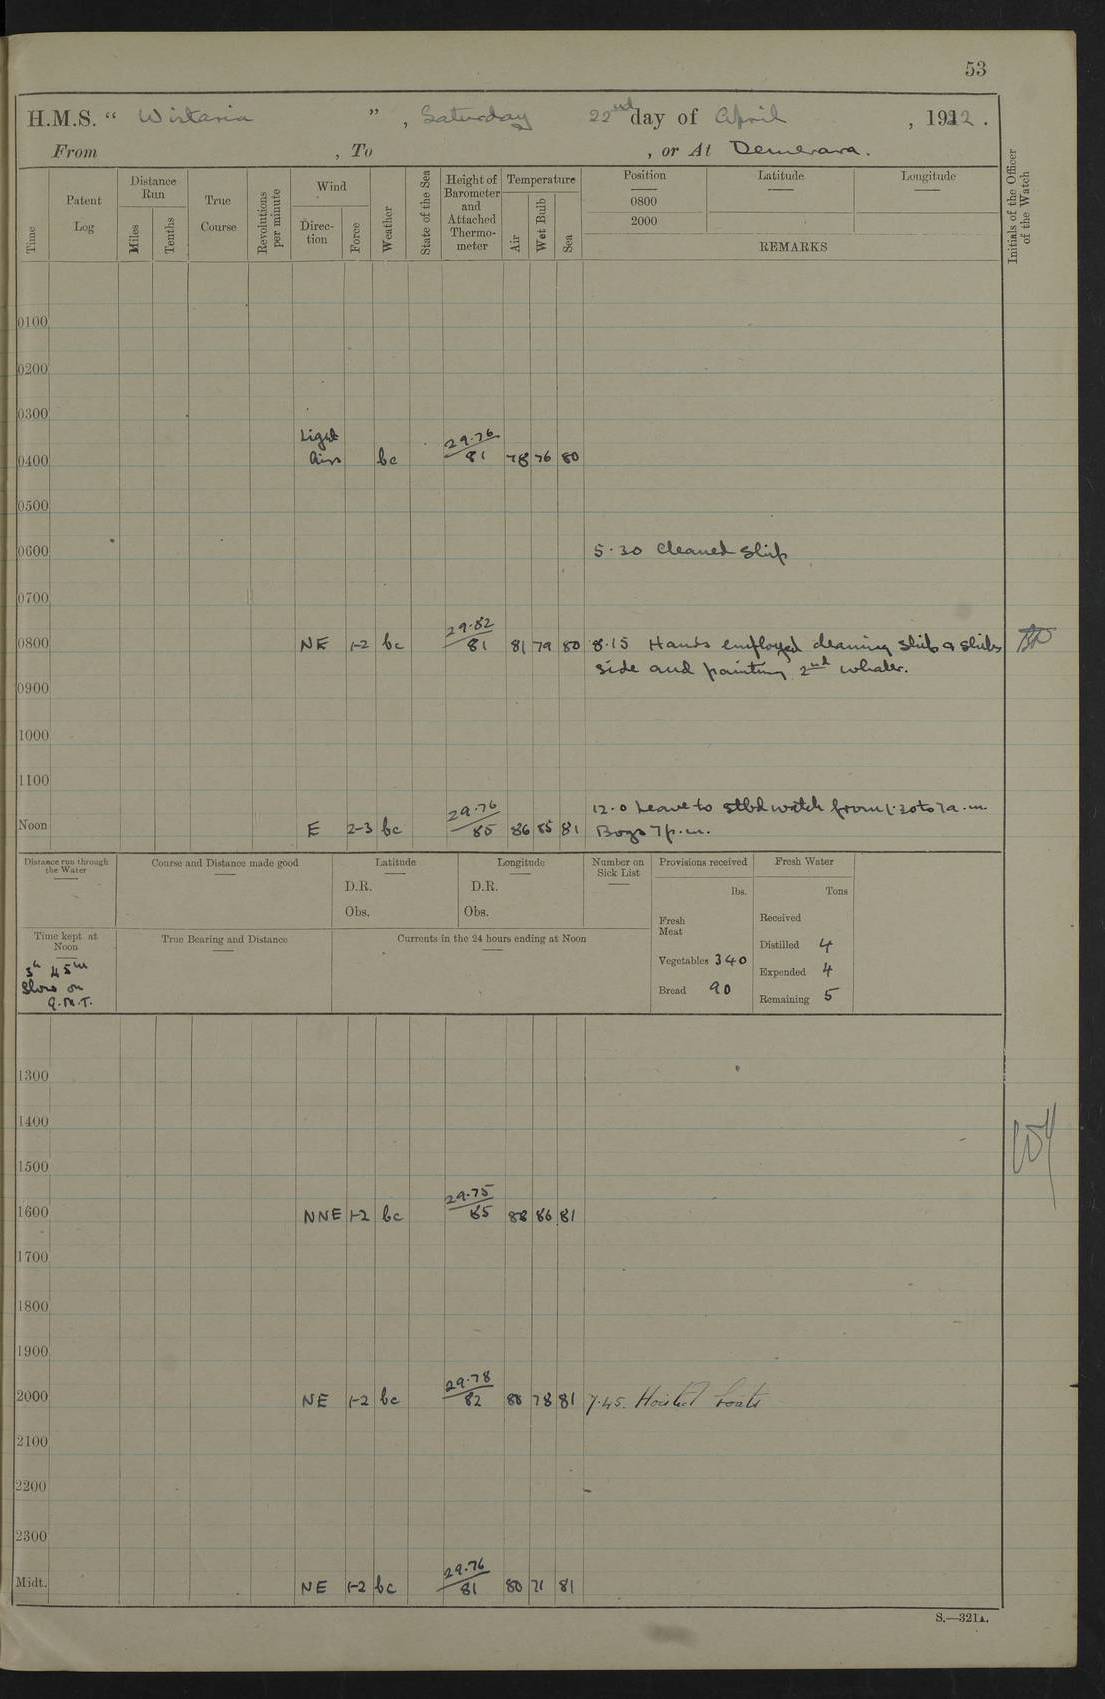 53
H.M.S. “ Wistaria ” , Saturday 22nd day of April , 1922 .
From , To , or At Demerara.
Time
Patent Log
Distance Run
Miles
Tenths
True Course
Revolutions per minute
Wind
Direc-tion
Force
Weather
State of the Sea
Height of Barometer and Attached Thermo-meter
Temperature
Air
Wet Bulb
Sea
Position
0800
2000
Latitude
Longitude
REMARKS
Initials of the Officer of the Watch
0100
0200
0300
Light
0400 Airs bc 29.76/81 78 76 80
0500
0600 5.30 Cleaned Ship
0700
0800 NE 1-2 bc 29.82/81 81 79 80 8.15 Hands employed cleaning ship & ships
side and painting 2nd whaler.
0900
1000
1100
12.0 Leave to stbd watch from 1.30 to 7 a.m.
Noon E 2-3 bc 29.76/85 86 85 81 Boys 7 p.m.
Distance run through the Water
Course and Distance made good
Latitude
D.R.
Obs.
Longitude
D.R.
Obs.
Number on Sick List
Provisions received
lbs.
Fresh Meat
Vegetables 340
Bread 90
Fresh Water
Tons
Received
Distilled 4
Expended 4
Remaining 5
Time kept at Noon
3h 45m
Slow on
G.M.T.
True Bearing and Distance
Currents in the 24 hours ending at Noon
1300
1400
1500
1600 NNE 1-2 bc 29.75/85 88 86 81
1700
1800
1900
2000 NE 1-2 bc 29.78/82 78 81 7.45. Hoisted boats
2100
2200
2300
Midt. NE 1-2 bc 29.76/81 80 71 81
S.—321A.